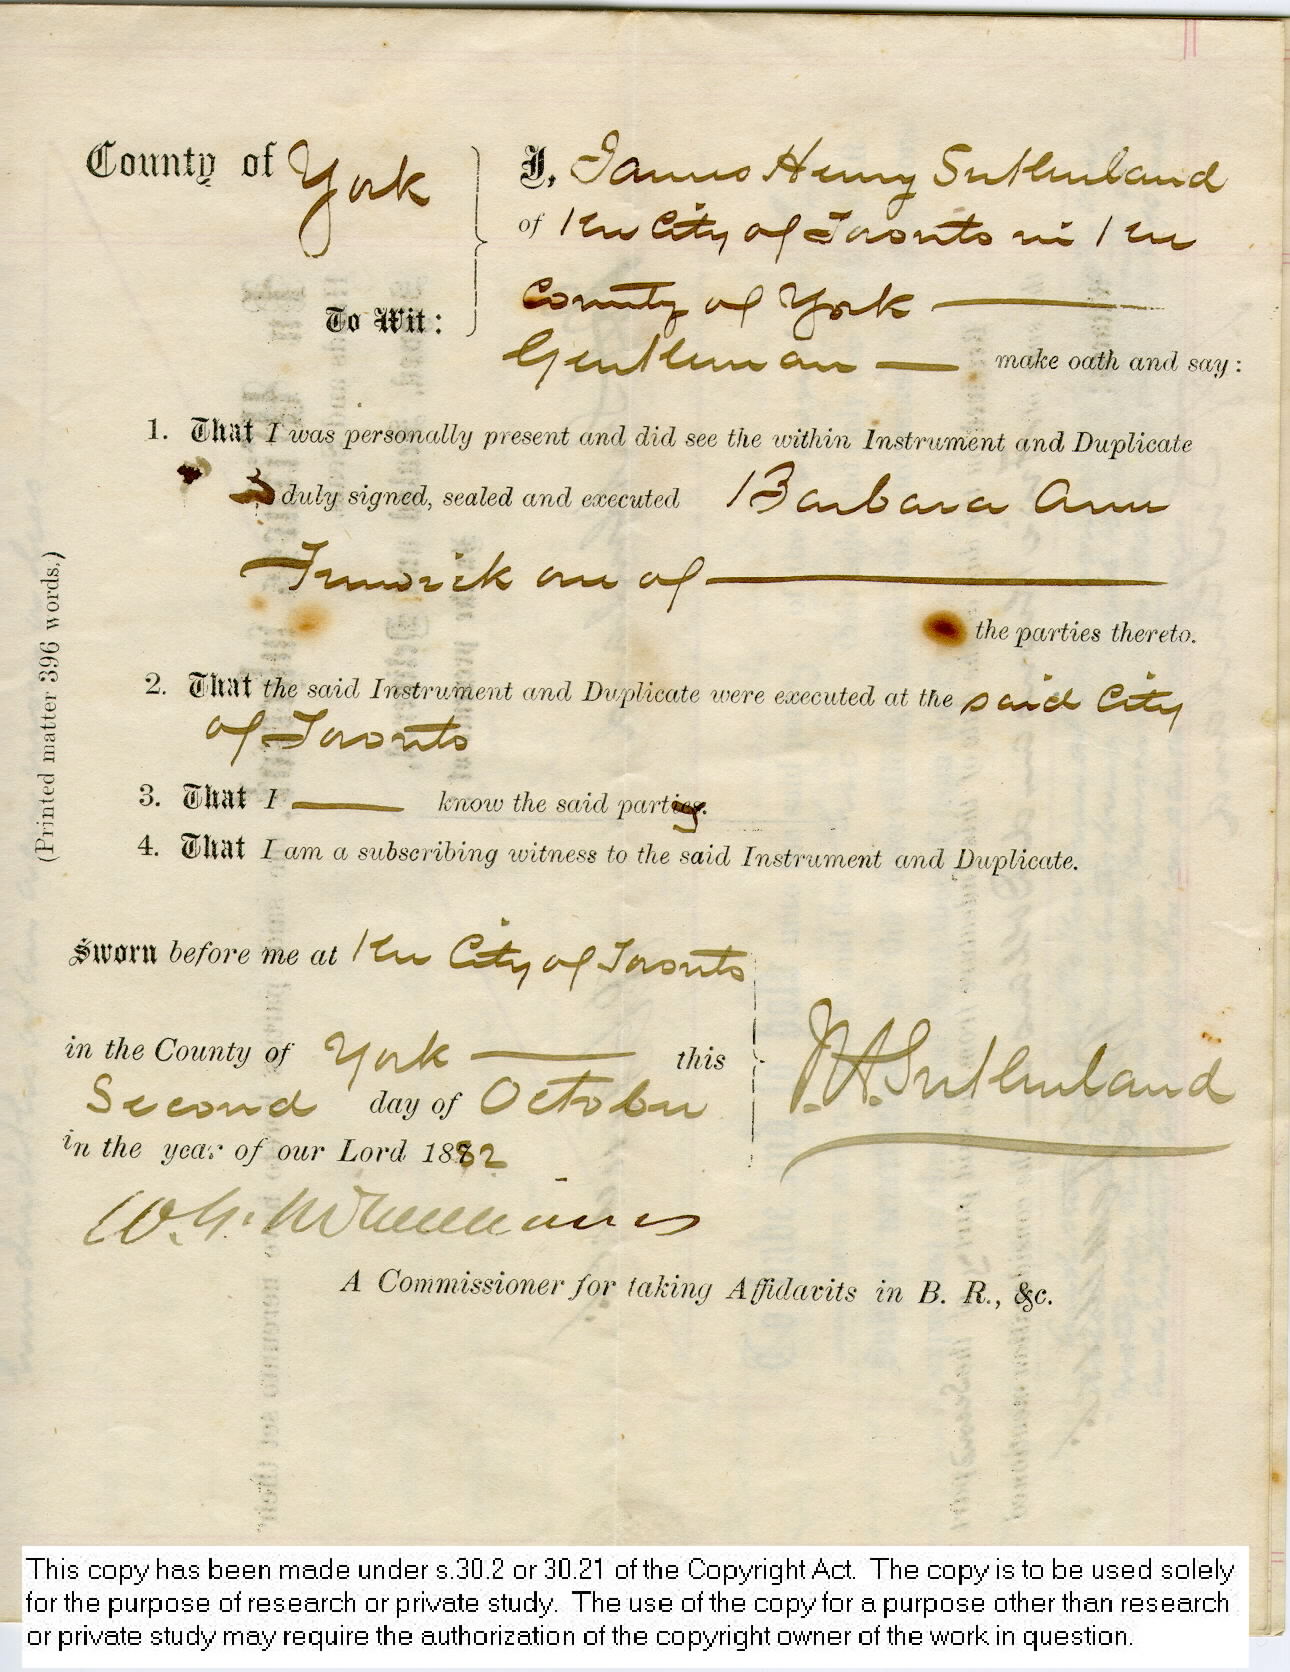 County of York
I, James Henry Sutherland
of the City of Toronto in the
County of York
To Wit:
Gentleman make oath and say:
1. That I was personally present and did see the within Instrument and Duplicate
duly signed, sealed and executed Barbara Ann
Fenwick one of
the parties thereto.
2. That the said Instrument and Duplicate were executed at the said City
of Toronto
3. That I know the said party.
4. That I am a subscribing witness to the said Instrument and Duplicate.
(Printed matter 396 words.)
Sworn before me at the City of Toronto
in the County of York this
Second day of October
in the year of our Lord 1882
J.H. Sutherland
W. G. McWilliams
A Commissioner for taking Affidavits in B. R., &c.
This copy has been made under s.30.2 or 30.21 of the Copyright Act. The copy is to be used solely
for the purpose of research or private study. The use of the copy for a purpose other than research
or private study may require the authorization of the copyright owner of the work in question.